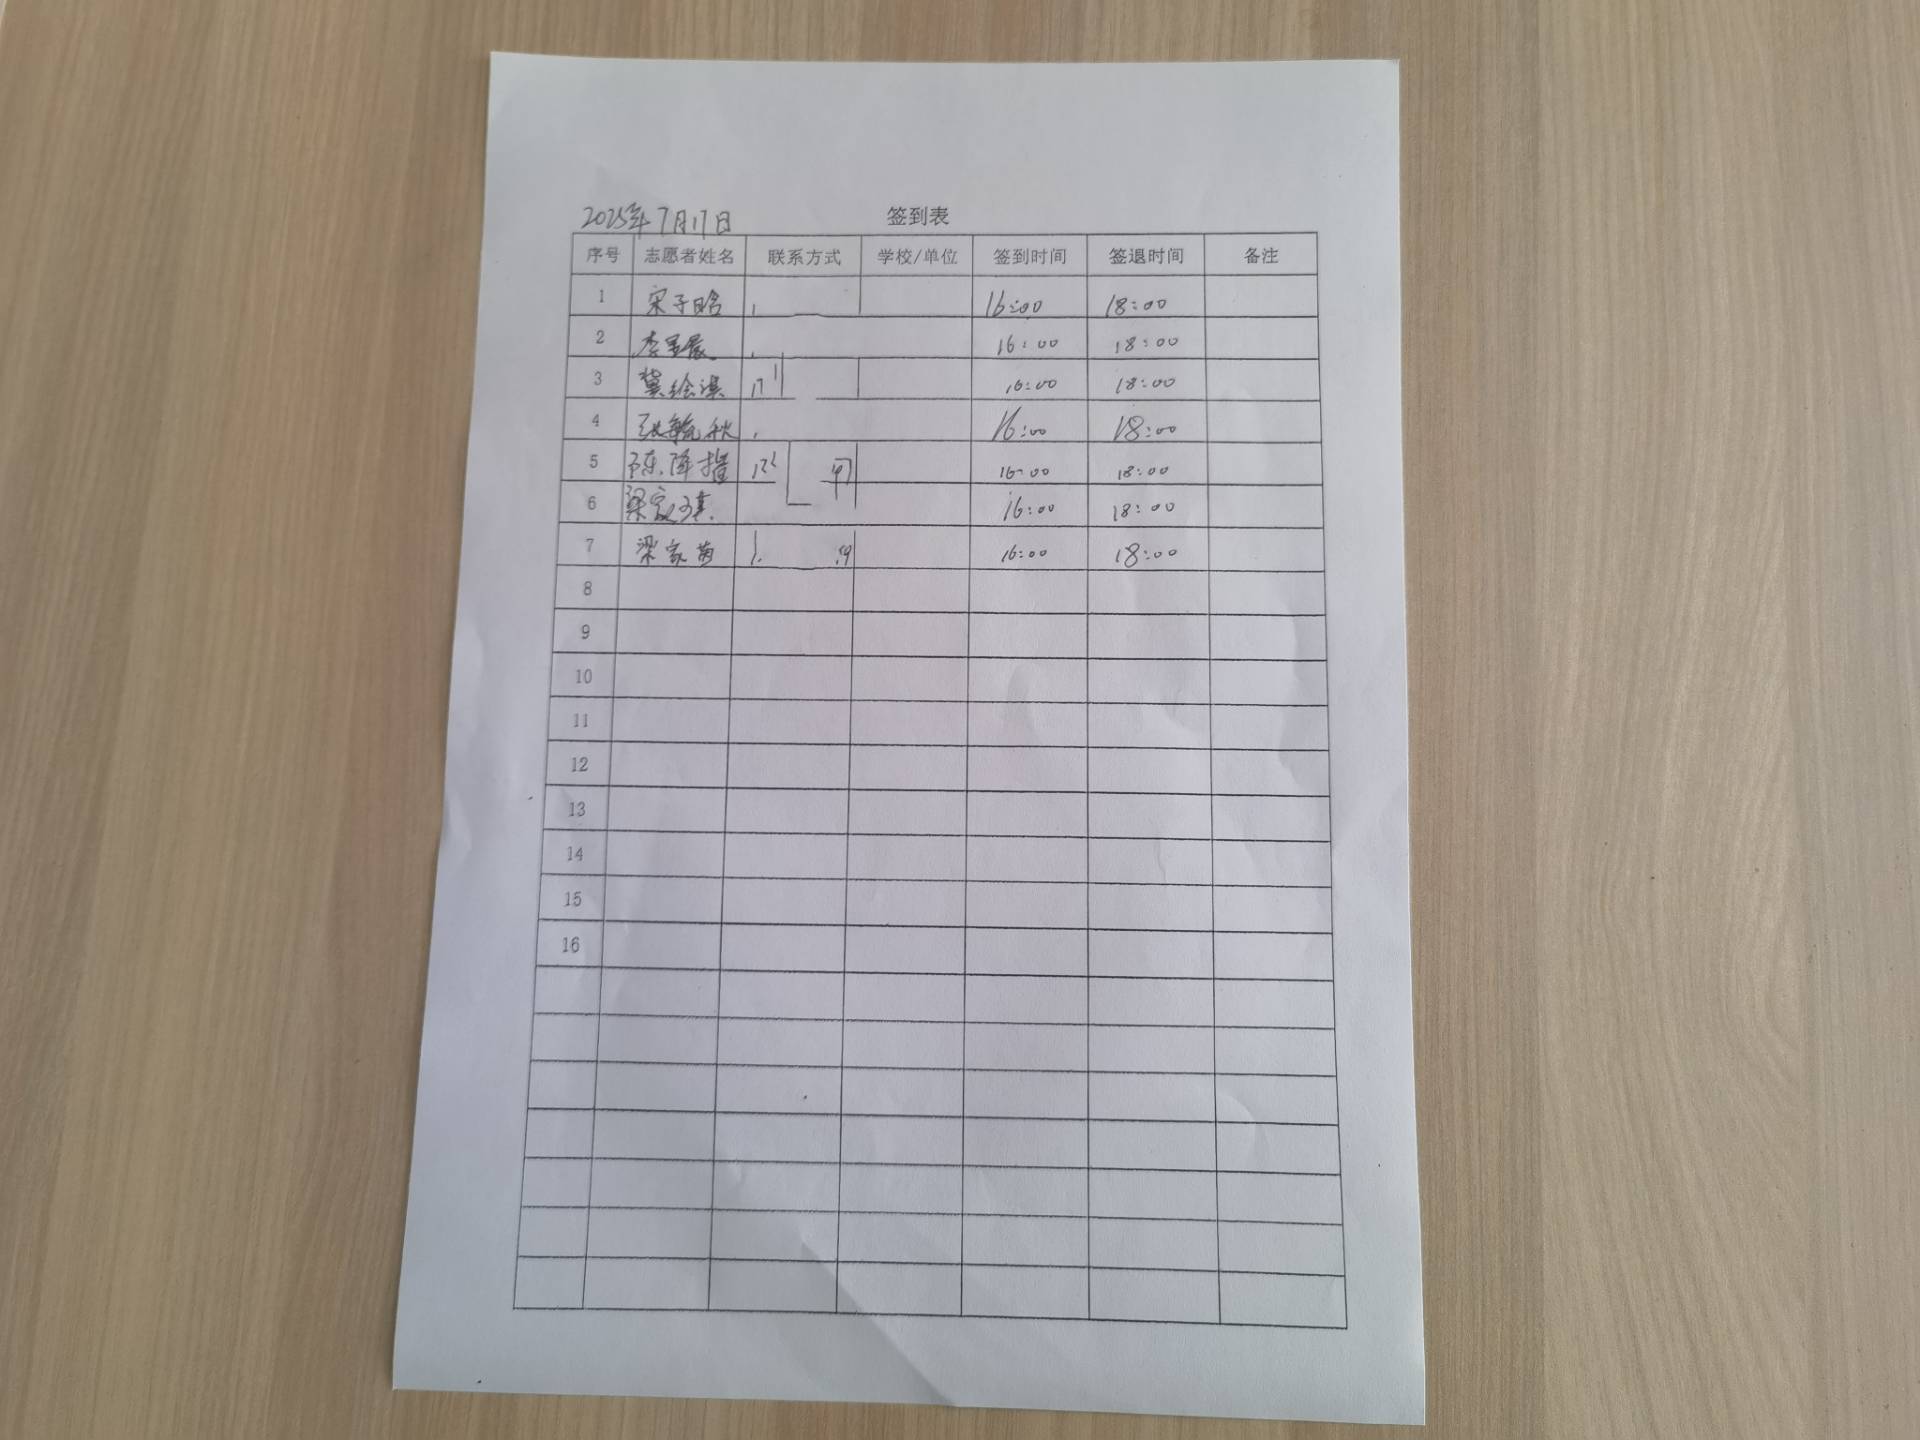 2025年7月17日 签到表
序号 志愿者姓名 联系方式 学校/单位 签到时间 签退时间 备注
1 宋子晗 16:00 18:00
2 李 16:00 18:00
3 冀绘淇 16:00 18:00
4 张毓秋 16:00 18:00
5 陈 16:00 18:00
6 梁家 16:00 18:00
7 梁家茵 16:00 18:00
8
9
10
11
12
13
14
15
16